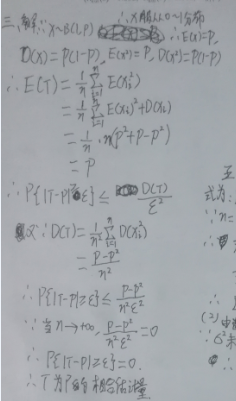 三、解:∵X~B(1,P) ∴X服从0~1分布
∴E(X)=P,
D(X)=P(1-P), E(X²)=P, D(X²)=P(1-P)
∴E(T)=\frac{1}{n}\sum_{i=1}^{n}E(X_i^2)
=\frac{1}{n}\sum_{i=1}^{n}E(X_i)^2+D(X_i)
=\frac{1}{n}·n(P²+P-P²)
=P
∴P{|T-P|≥ε}≤\frac{D(T)}{ε^2}
又∵D(T)=\frac{1}{n^2}\sum_{i=1}^{n}D(X_i^2)
=\frac{P-P^2}{n^2}
∴P{|T-P|≥ε}≤\frac{P-P^2}{n^2ε^2}
∵当n→+∞,\frac{P-P^2}{n^2ε^2}=0
∴P{|T-P|≥ε}=0.
∴T为P的相合估计量
五
式为:
∵n=
(2)由